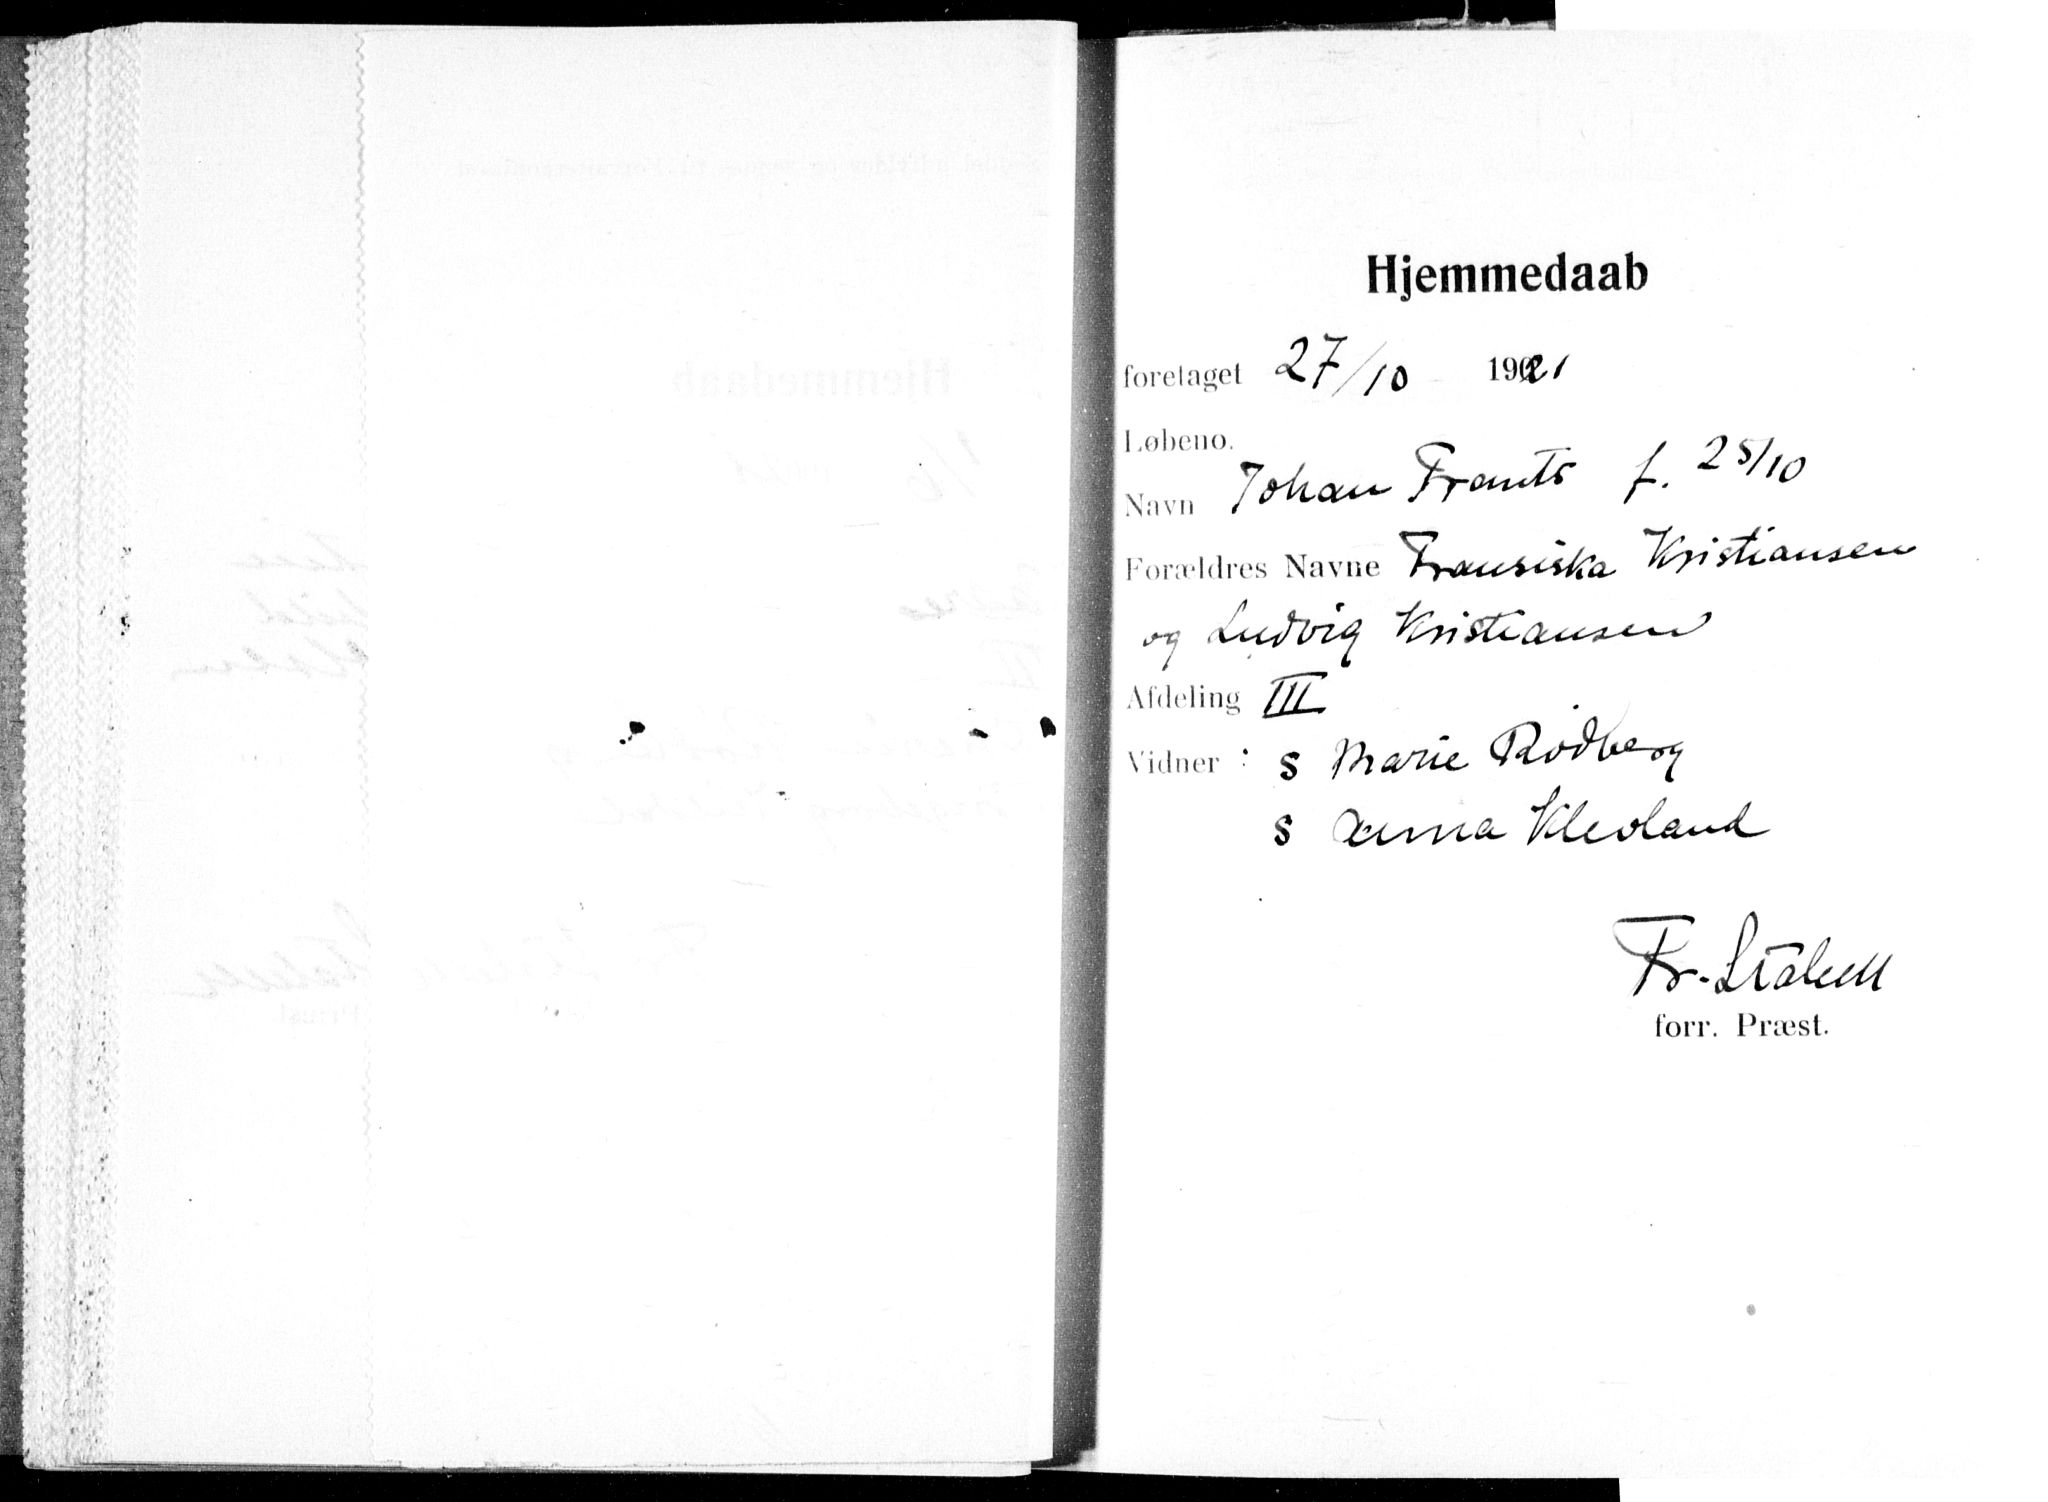 Hjemmedaab
foretaget 27/10 1921
Løbeno.
Navn Johan Frants f. 25/10
Forældres Navne Fransiska Kristiansen
og Ludvig Kristiansen
Afdeling III
Vidner : s Marie Rødberg
s Anna Klevland
Fr. Stabell
forr. Præst.